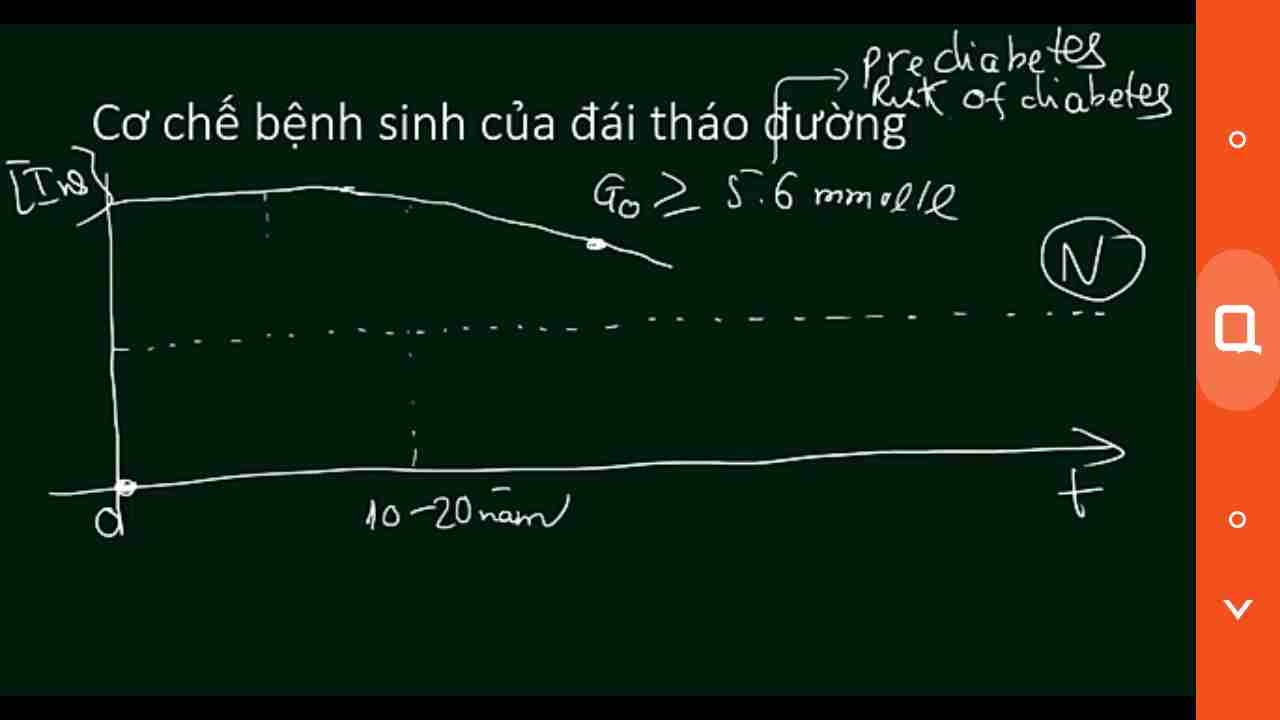 prediabetes
Risk of diabetes
Cơ chế bệnh sinh của đái tháo đường
[Ins]
G₀ ≥ 5.6 mmol/l
N
10-20 năm
t